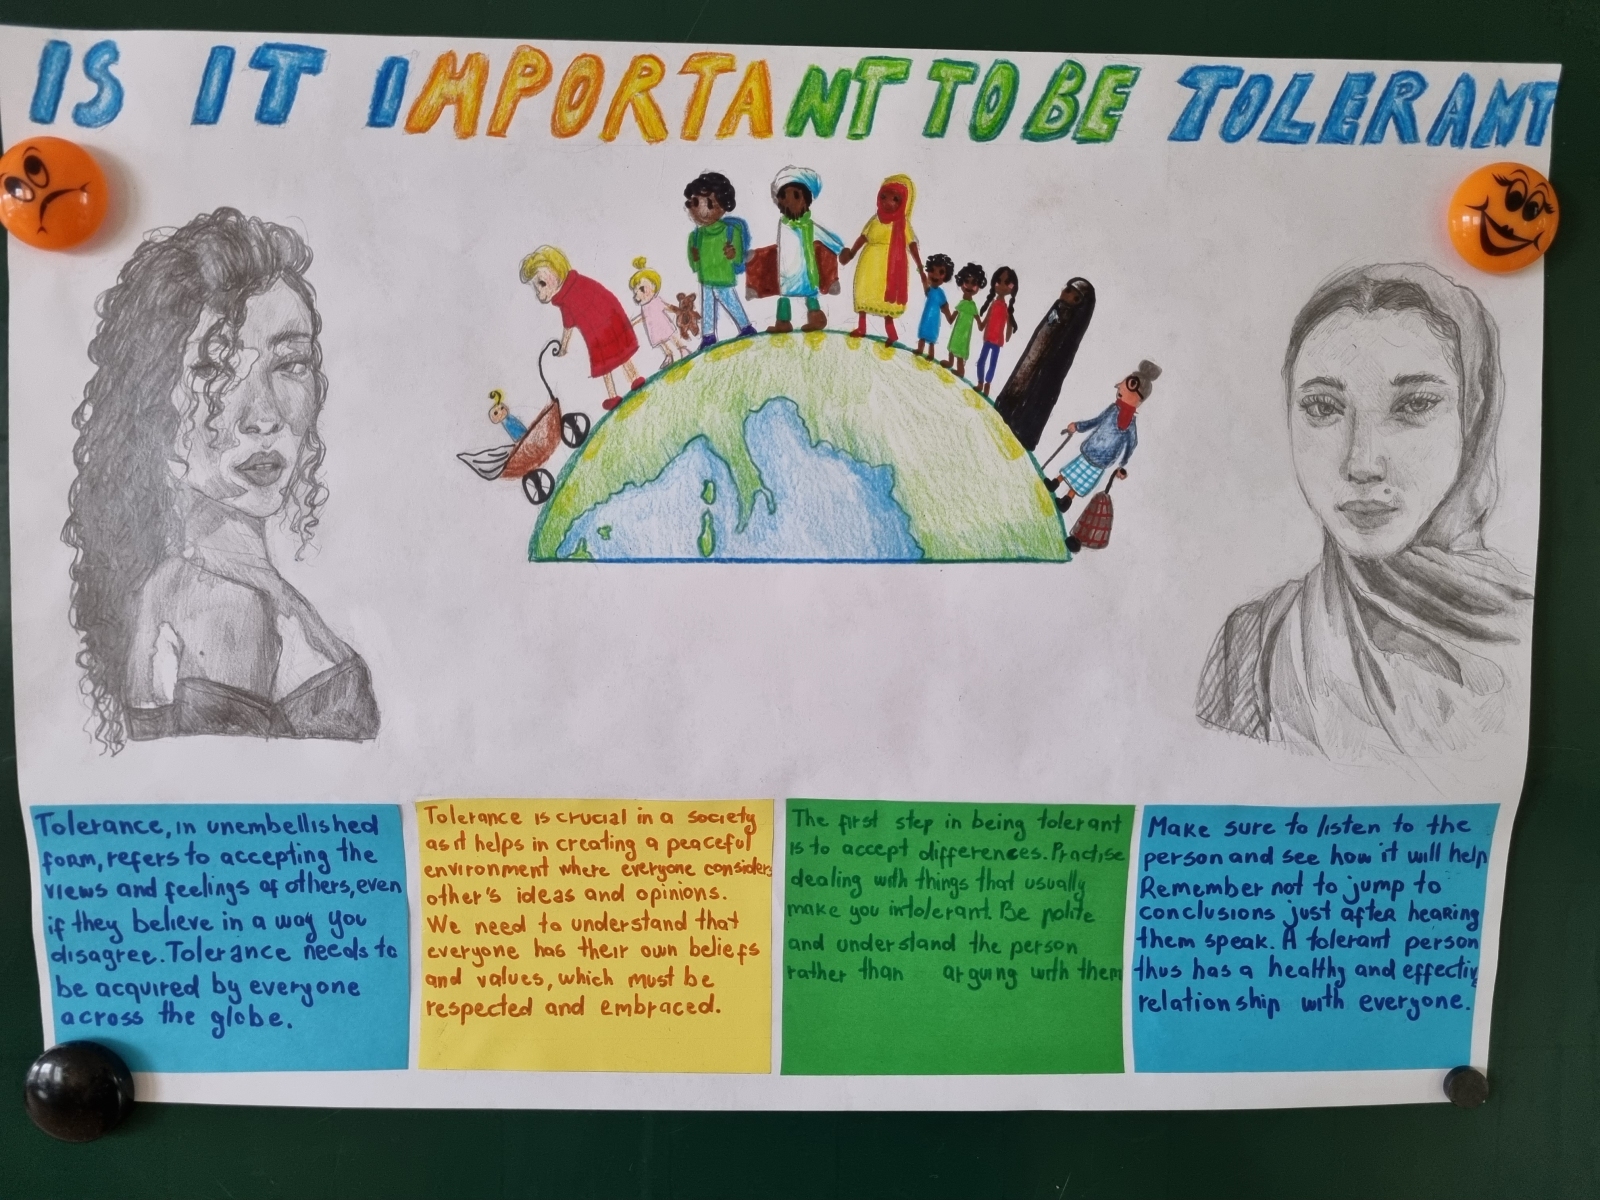 IS IT IMPORTANT TO BE TOLERANT
Tolerance, in unembellished
form, refers to accepting the
views and feelings of others, even
if they believe in a way you
disagree. Tolerance needs to
be acquired by everyone
across the globe.
Tolerance is crucial in a society
as it helps in creating a peaceful
environment where everyone considers
other's ideas and opinions.
We need to understand that
everyone has their own beliefs
and values, which must be
respected and embraced.
The first step in being tolerant
is to accept differences. Practise
dealing with things that usually
make you intolerant. Be polite
and understand the person
rather than arguing with them
Make sure to listen to the
person and see how it will help
Remember not to jump to
conclusions just after hearing
them speak. A tolerant person
thus has a healthy and effectiv
relationship with everyone.